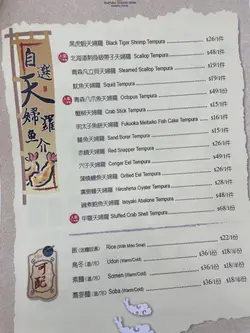 自選
天婦羅
魚介
黑虎蝦天婦羅 Black Tiger Shrimp Tempura $26/1件
北海道刺身級帶子天婦羅 Scallop Tempura $48/1件
Steamed Scallop Tempura $19/1件
魷魚天婦羅 Squid Tempura $19/1件
青森八爪魚天婦羅 Octopus Tempura $49/1份
蟹柳天婦羅 Crab Stick Tempura $15/1件
明太子魚餅天婦羅 Fukuoka Mentaiko Fish Cake Tempura $16/1件
Sand Borer Tempura $15/1件
赤鯛天婦羅 Red Snapper Tempura $26/1件
穴子天婦羅 Conger Eel Tempura $49/1件
蒲燒鰻魚天婦羅 Grilled Eel Tempura $26/1件
廣島蠔天婦羅 Hiroshima Oyster Tempura $28/1件
Isoyaki Abalone Tempura $36/1件
甲羅天婦羅 Stuffed Crab Shell Tempura $68/1份
可配
Rice (With Miso Soup) $22/1份
烏冬 Udon (Warm/Cold) $36/1份 $18/半份
素麵 Somen (Warm/Cold) $36/1份 $18/半份
蕎麥麵 Soba (Warm/Cold) $36/1份 $18/半份